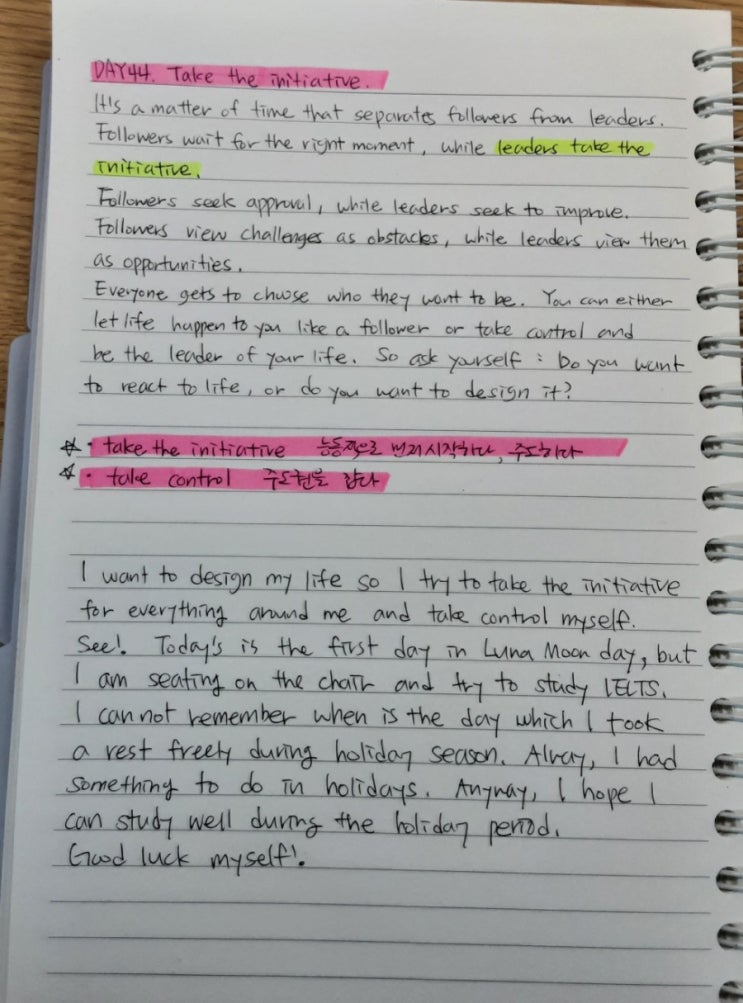 DAY44. Take the initiative.
It's a matter of time that separates followers from leaders.
Followers wait for the right moment, while leaders take the
initiative.
Followers seek approval, while leaders seek to improve.
Followers view challenges as obstacles, while leaders view them
as opportunities.
Everyone gets to choose who they want to be. You can either
let life happen to you like a follower or take control and
be the leader of your life. So ask yourself : Do you want
to react to life, or do you want to design it?
☆ · take the initiative 능동적으로 먼저 시작하다, 주도하다
☆ · take control 주도권을 잡다
I want to design my life so I try to take the initiative
for everything around me and take control myself.
See! Today's is the first day in Luna Moon day, but
I am seating on the chair and try to study IELTS.
I can not remember when is the day which I took
a rest freely during holiday season. Alway, I had
something to do in holidays. Anyway, I hope I
can study well during the holiday period.
Good luck myself!